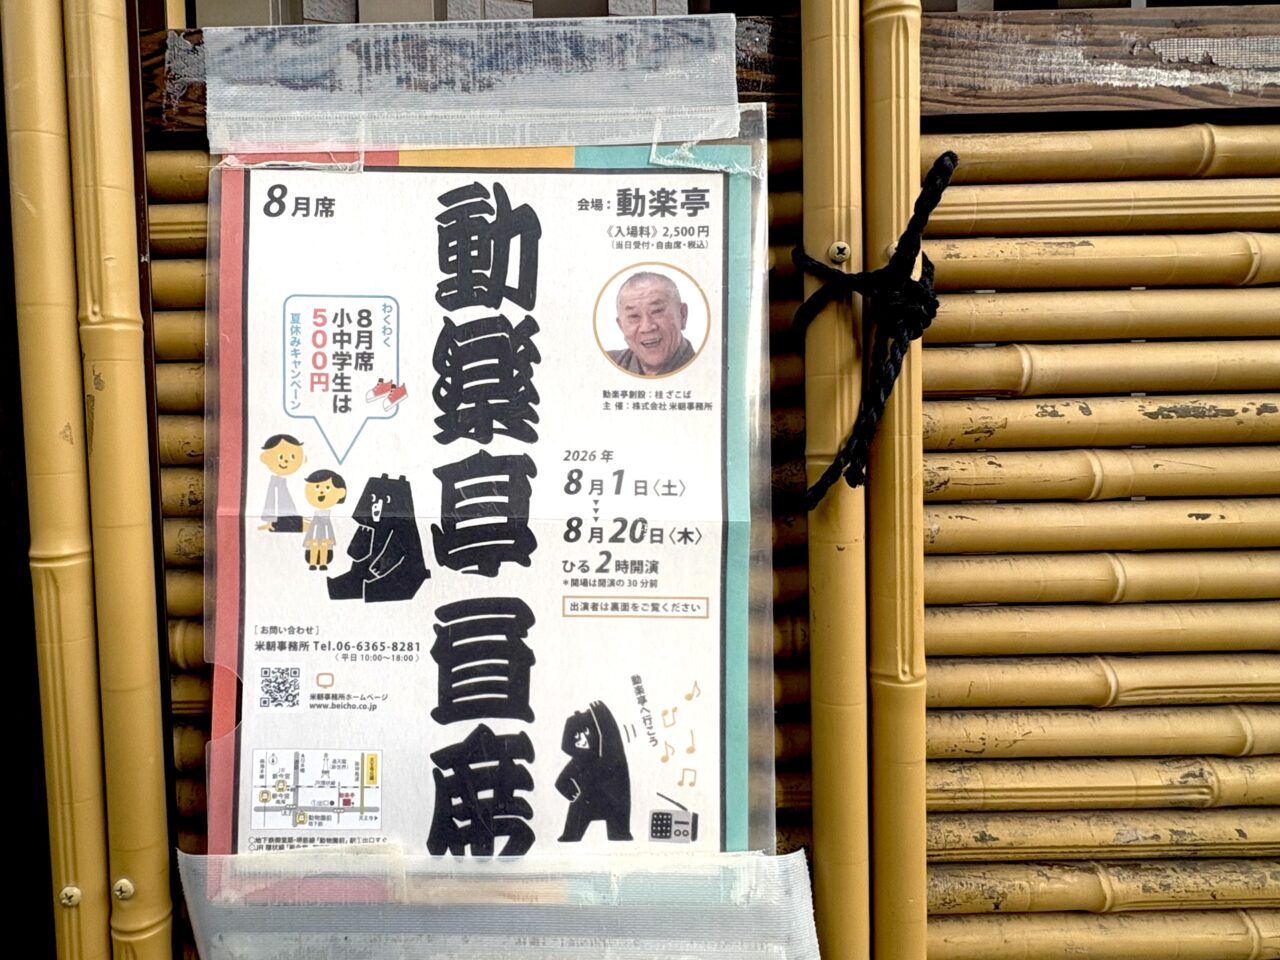 8月席
動楽亭昼席
会場：動楽亭
《入場料》2,500円
（当日受付・自由席・税込）
わくわく
8月席
小中学生は
500円
夏休みキャンペーン
動楽亭創設：桂 ざこば
主 催：株式会社 米朝事務所
2026年
8月1日〈土〉
8月20日〈木〉
ひる2時開演
＊開場は開演の30分前
出演者は裏面をご覧ください
［お問い合わせ］
米朝事務所 Tel.06-6365-8281
（平日 10:00〜18:00）
米朝事務所ホームページ
www.beicho.co.jp
動楽亭へ行こう
JR環状線
新今宮
新今宮
南海
通天閣
（新世界）
①出口
動楽亭
動物園前
地下鉄
天王寺
○地下鉄御堂筋・堺筋線「動物園前」駅①出口すぐ
○JR環状線「新今宮